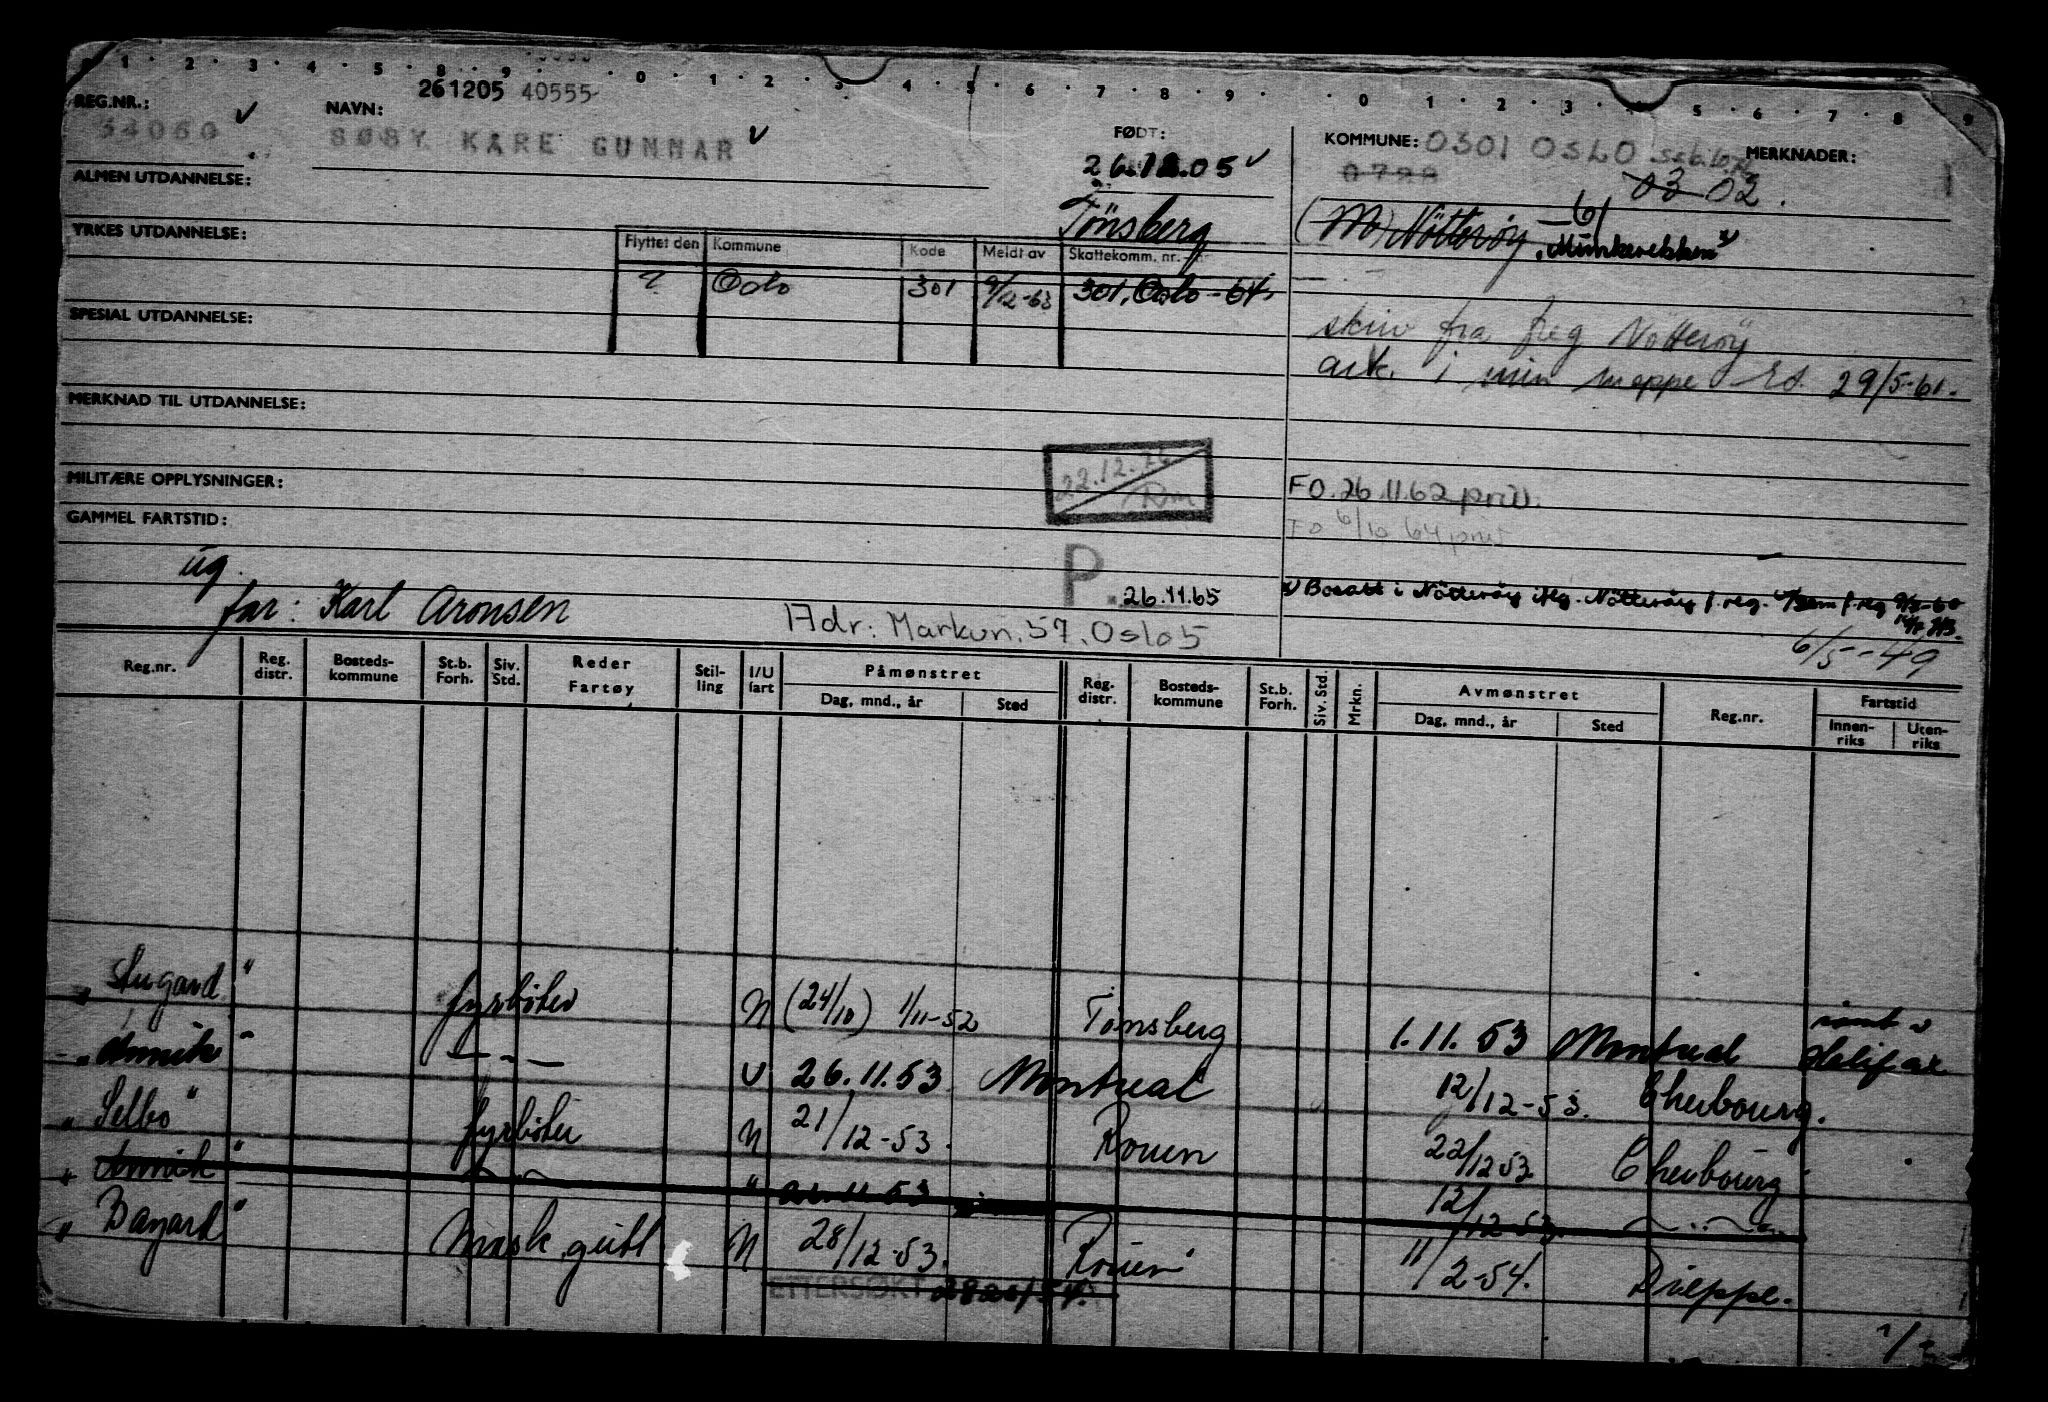 0 1 2 3 4 5 8 9 0 1 2 3 4 5 6 7 8 9 0 1 2 3 4 5 6 7 8 9
261205 40555
REG.NR.: NAVN: FØDT: KOMMUNE: 0301 OSLO MERKNADER:
34060 SØBY KARE GUNNAR 26.12.05 03 02.
ALMEN UTDANNELSE: Tönsberg (M) Nötteröy, Munkerekken x)
YRKES UTDANNELSE:
Flyttet den Kommune Kode Meldt av Skattekomm. nr.
? Oslo 301 9/12-63 301, Oslo - 64
SPESIAL UTDANNELSE:
skriv fra freg Nötteröy
ark. i min mappe 29/5-61.
MERKNAD TIL UTDANNELSE:
MILITÆRE OPPLYSNINGER: 22.12. FO. 26.11.62 priv.
GAMMEL FARTSTID: FO 6/10 64 priv
ug.
P. 26.11.65 x) Bosatt i Nötteröy
far: Karl Aronsen Adr: Markvn. 57. Oslo 5
6/5-49
Reg.nr. Reg. distr. Bosteds- kommune St.b. Forh. Siv. Std. Reder Fartøy Stil- ling I/U fart Påmønstret Dag, mnd., år Sted Reg. distr. Bosteds- kommune St.b. Forh. Siv. Std. Mrkn. Avmønstret Dag, mnd., år Sted Reg.nr. Fartstid Innen- riks Uten- riks
"Stugard" fyrböter N (24/10) 1/11-52 Tönsberg 1.11.53 Montreal Halifax
"Annik" — " — U 26.11.53 Montreal 12/12-53. Cherbourg.
"Selbo" fyrböter N 21/12-53. Rouen 22/12 53 Cherbourg
"Annik" " 26.11.53 12/12-53
"Bayard" Mask.gutt N 28/12-53. Rouen 11/2-54. Dieppe.
ETTERSØKT